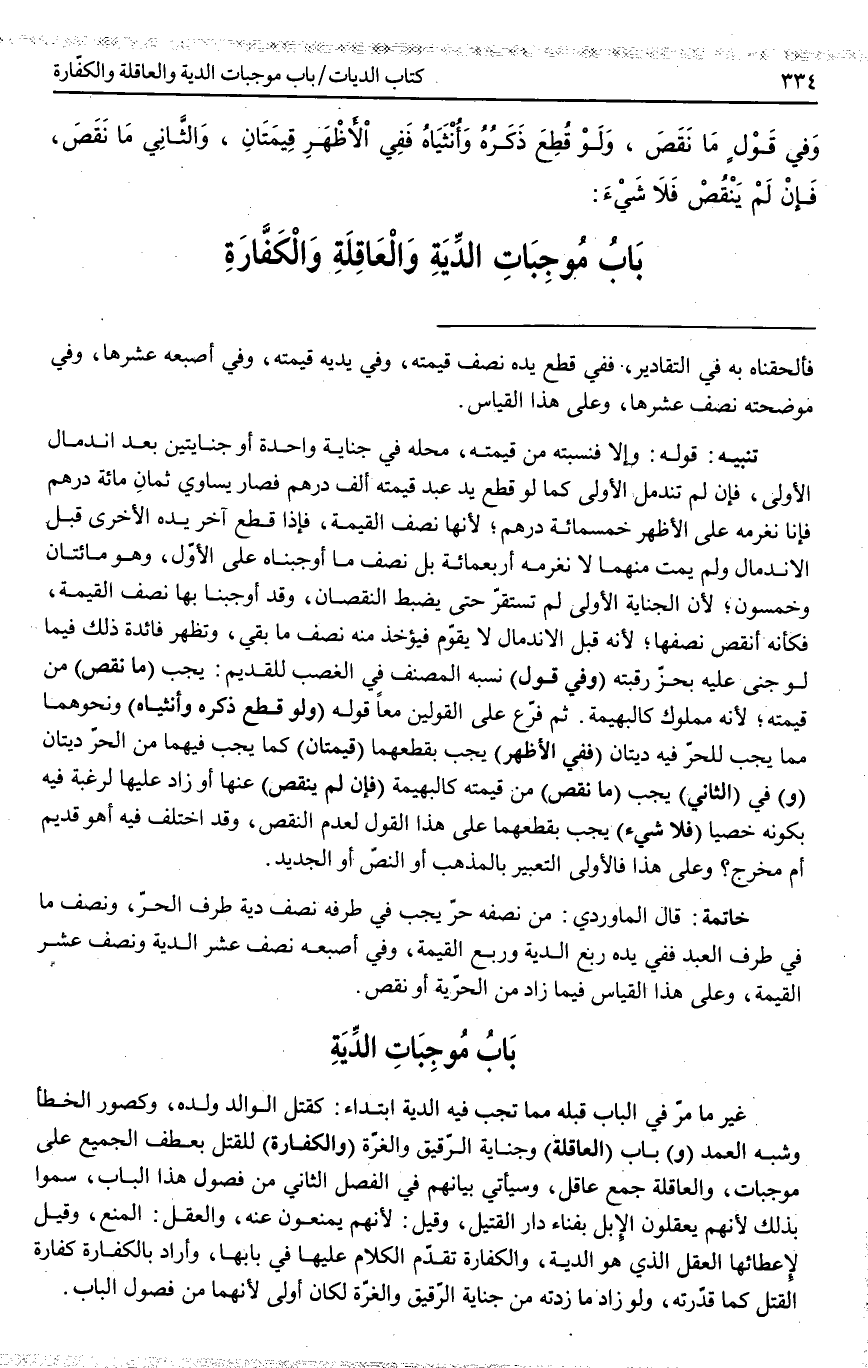 ٣٣٤ كتاب الديات/ باب موجبات الدية والعاقلة والكفّارة
وَفي قَوْلٍ مَا نَقَصَ ، وَلَوْ قُطِعَ ذَكَرُهُ وَأُنْثَيَاهُ فَفِي الْأَظْهَرِ قِيمَتَانِ ، وَالثَّانِي مَا نَقَصَ،
فَإِنْ لَمْ يَنْقُصْ فَلَا شَيْءَ:
بَابُ مُوجِبَاتِ الدِّيَةِ وَالْعَاقِلَةِ وَالْكَفَّارَةِ
فألحقناه به في التقادير، ففي قطع يده نصف قيمته، وفي يديه قيمته، وفي أصبعه عشرها، وفي
موضحته نصف عشرها، وعلى هذا القياس.
تنبيه: قوله: وإلا فنسبته من قيمته، محله في جناية واحدة أو جنايتين بعد اندمال
الأولى، فإن لم تندمل الأولى كما لو قطع يد عبد قيمته ألف درهم فصار يساوي ثمانِ مائة درهم
فإنا نغرمه على الأظهر خمسمائة درهم؛ لأنها نصف القيمة، فإذا قطع آخر يده الأخرى قبل
الاندمال ولم يمت منهما لا نغرمه أربعمائة بل نصف ما أوجبناه على الأوّل، وهو مائتان
وخمسون؛ لأن الجناية الأولى لم تستقرّ حتى يضبط النقصان، وقد أوجبنا بها نصف القيمة،
فكأنه أنقص نصفها؛ لأنه قبل الاندمال لا يقوّم فيؤخذ منه نصف ما بقي، وتظهر فائدة ذلك فيما
لو جنى عليه بحزّ رقبته (وفي قول) نسبه المصنف في الغصب للقديم: يجب (ما نقص) من
قيمته؛ لأنه مملوك كالبهيمة. ثم فرّع على القولين معاً قوله (ولو قطع ذكره وأنثياه) ونحوهما
مما يجب للحرّ فيه ديتان (ففي الأظهر) يجب بقطعهما (قيمتان) كما يجب فيهما من الحرّ ديتان
(و) في (الثاني) يجب (ما نقص) من قيمته كالبهيمة (فإن لم ينقص) عنها أو زاد عليها لرغبة فيه
بكونه خصيا (فلا شيء) يجب بقطعهما على هذا القول لعدم النقص، وقد اختلف فيه أهو قديم
أم مخرج؟ وعلى هذا فالأولى التعبير بالمذهب أو النصّ أو الجديد.
خاتمة: قال الماوردي: من نصفه حرّ يجب في طرفه نصف دية طرف الحرّ، ونصف ما
في طرف العبد ففي يده ربع الدية وربع القيمة، وفي أصبعه نصف عشر الدية ونصف عشر
القيمة، وعلى هذا القياس فيما زاد من الحرّية أو نقص.
بَابُ مُوجِبَاتِ الدِّيَةِ
غير ما مرّ في الباب قبله مما تجب فيه الدية ابتداء: كقتل الوالد ولده، وكصور الخطأ
وشبه العمد (و) باب (العاقلة) وجناية الرّقيق والغرّة (والكفارة) للقتل بعطف الجميع على
موجبات، والعاقلة جمع عاقل، وسيأتي بيانهم في الفصل الثاني من فصول هذا الباب، سموا
بذلك لأنهم يعقلون الإبل بفناء دار القتيل، وقيل: لأنهم يمنعون عنه، والعقل: المنع، وقيل
لإعطائها العقل الذي هو الدية، والكفارة تقدّم الكلام عليها في بابها، وأراد بالكفارة كفارة
القتل كما قدّرته، ولو زاد ما زدته من جناية الرّقيق والغرّة لكان أولى لأنهما من فصول الباب.